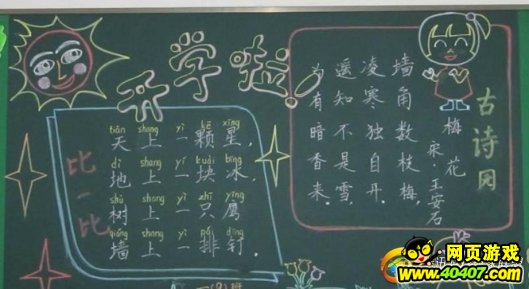 开学啦！
比一比
tiān shang yì kē xīng
天上一颗星，
dì shang yí kuài bīng
地上一块冰，
shù shang yì zhī yīng
树上一只鹰
qiáng shang yì pái dīng
墙上一排钉．
古诗园
梅花
宋 王安石
墙角数枝梅
凌寒独自开．
遥知不是雪，
为有暗香来．
网页游戏
www.40407.com